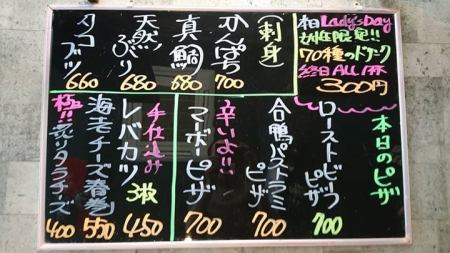 本日Lady'sDay
女性限定!!
70種のドリンク
終日ALL1杯
300円
(刺身)
かんぱち
700
真鯛
680
天然ぶり
680
タコブツ
660
本日のピザ
ローストビーフピザ
700
合鴨パストラミピザ
700
辛いよ!!
マーボーピザ
700
手仕込み
レバカツ
3枚
450
海老チーズ春巻
550
極上!!
炙りタラチーズ
400